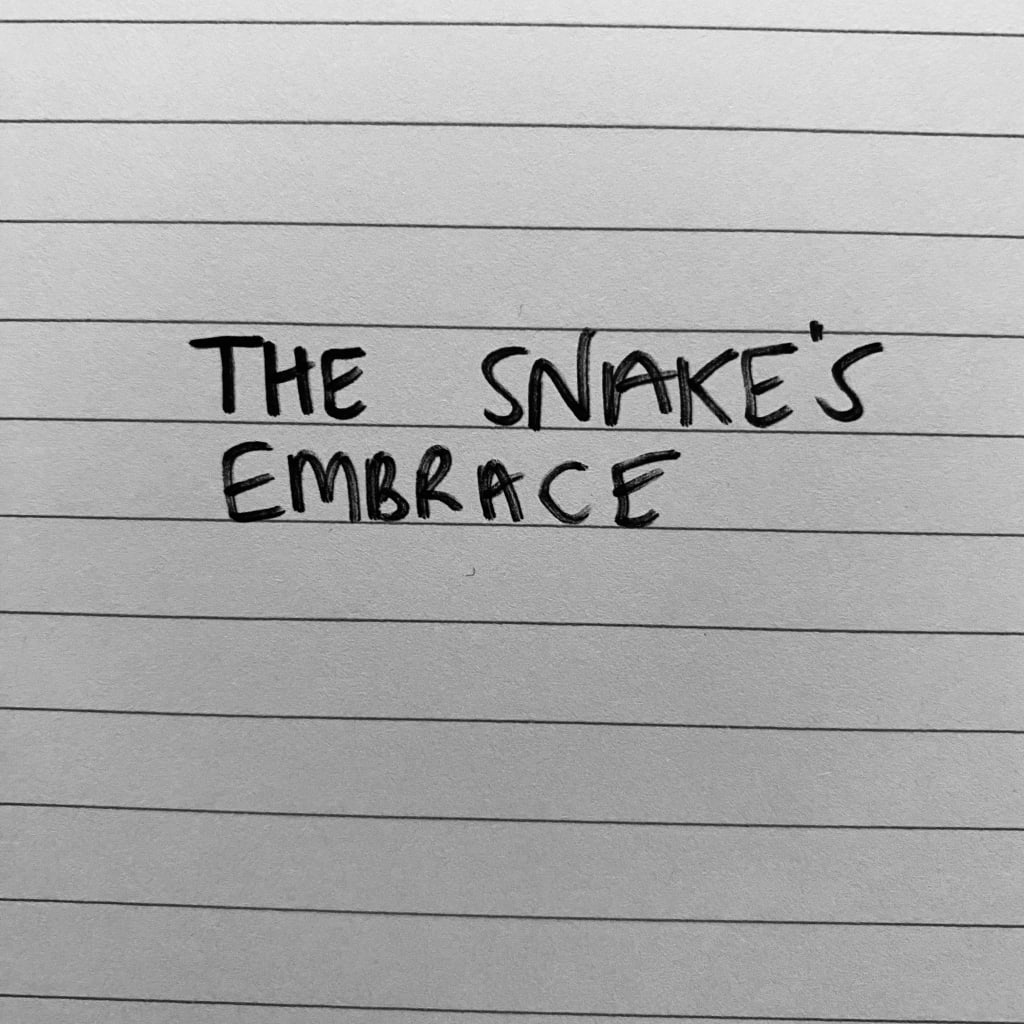 THE SNAKE'S
EMBRACE